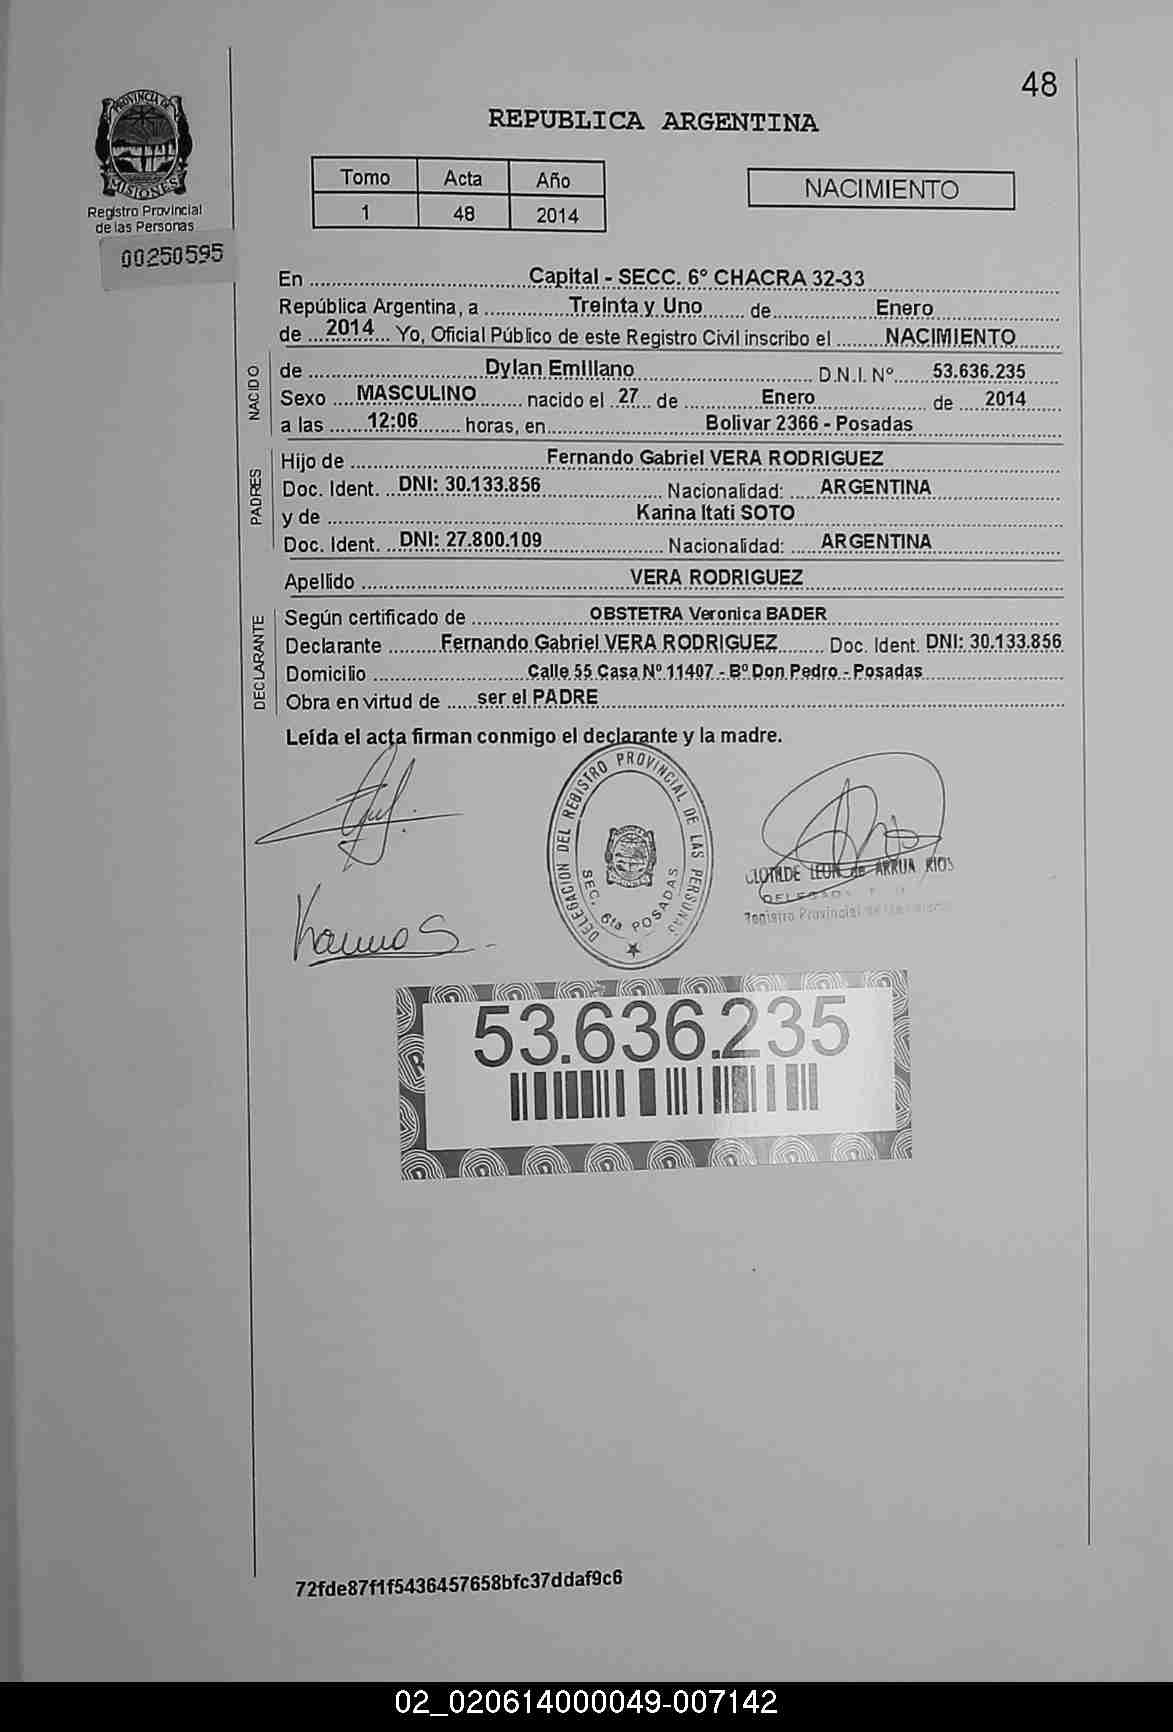 48
REPUBLICA ARGENTINA
PROVINCIA DE
MISIONES
Registro Provincial
de las Personas
00250595
Tomo Acta Año
1 48 2014
NACIMIENTO
En Capital - SECC. 6° CHACRA 32-33
República Argentina, a Treinta y Uno de Enero
de 2014 Yo, Oficial Público de este Registro Civil inscribo el NACIMIENTO
NACIDO
de Dylan Emiliano D.N.I. N° 53.636.235
Sexo MASCULINO nacido el 27 de Enero de 2014
a las 12:06 horas, en Bolivar 2366 - Posadas
PADRES
Hijo de Fernando Gabriel VERA RODRIGUEZ
Doc. Ident. DNI: 30.133.856 Nacionalidad: ARGENTINA
y de Karina Itati SOTO
Doc. Ident. DNI: 27.800.109 Nacionalidad: ARGENTINA
Apellido VERA RODRIGUEZ
DECLARANTE
Según certificado de OBSTETRA Veronica BADER
Declarante Fernando Gabriel VERA RODRIGUEZ Doc. Ident. DNI: 30.133.856
Domicilio Calle 55 Casa Nº 11407 - Bº Don Pedro - Posadas
Obra en virtud de ser el PADRE
Leída el acta firman conmigo el declarante y la madre.
DELEGACION DEL REGISTRO PROVINCIAL DE LAS PERSONAS
SEC. 6ta POSADAS
CLOTILDE LEON de ARRUA RIOS
Registro Provincial de las
Karina S.
53.636.235
72fde87f1f5436457658bfc37ddaf9c6
02_020614000049-007142